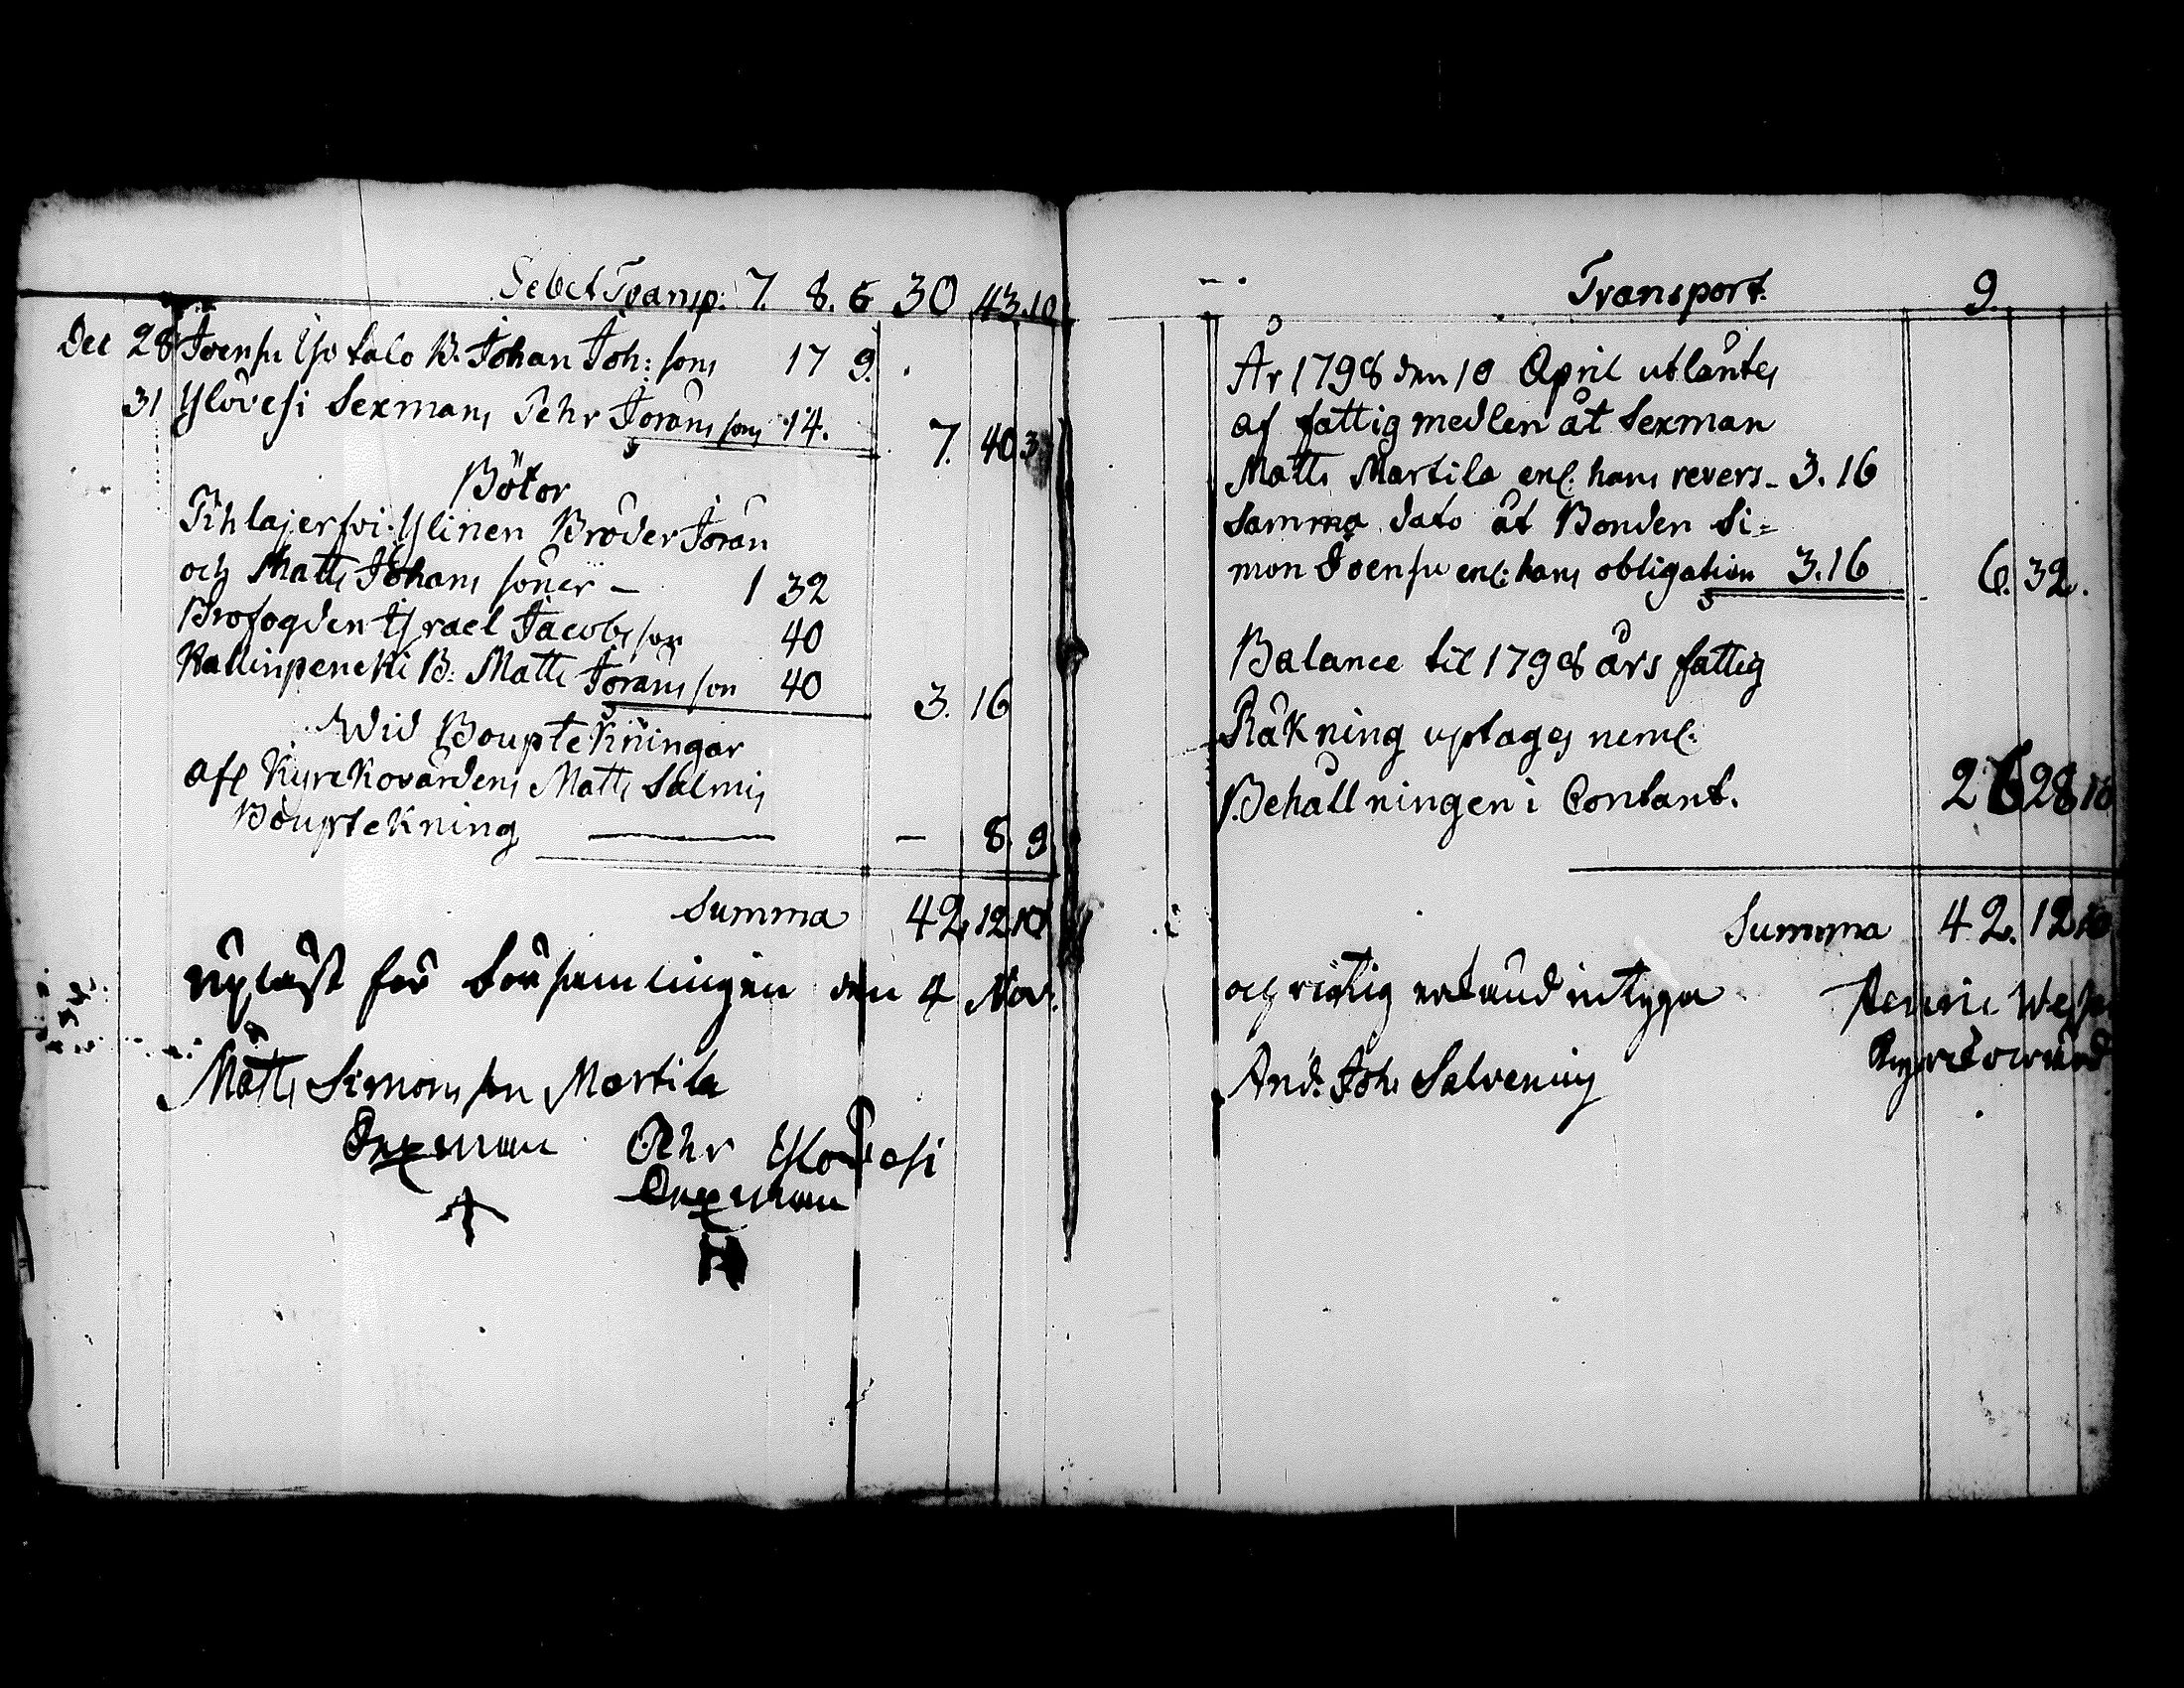 Debet Transp: 7. 8. 6 30 43.10
Dec 28 Joensu Iso talo B. Johan Joh: sons 17 9.
31 Ylövesi Sexmans Pehr Jöranssons 14. 7. 40 3
Böter
Pihlajerfvi Ylinen Bröder Jöran
och Matts Johans söner – 1 32
Brofogden Israel Jacobsson 40
B. Matts Jöransson 40 3. 16
Wid Bouptekningar
afl Kyrckovärdens Matts Salmis
Bouptekning — – 8. 9
Summa 42 12 10
Upläst för Församlingen den 4 Mar:
Matts Simonsson Martila
Sexman Pehr Ylövesi
Sexman
Transport 9.
År 1798 den 10 April utlåntes
af fattig medlen åt Sexman
Matts Martila enl: hans revers – 3. 16
Samma dato åt Bonden Si=
mon Joensu enl: hans obligation 3.16 6. 32.
Balance til 1798 års fattig
Räkning uptages neml:
Behållningen i Contant. 26 28 10
Summa 42. 12 10
och riktig erkänd intyga
Kyrckovärd
And: Joh: Salvenius